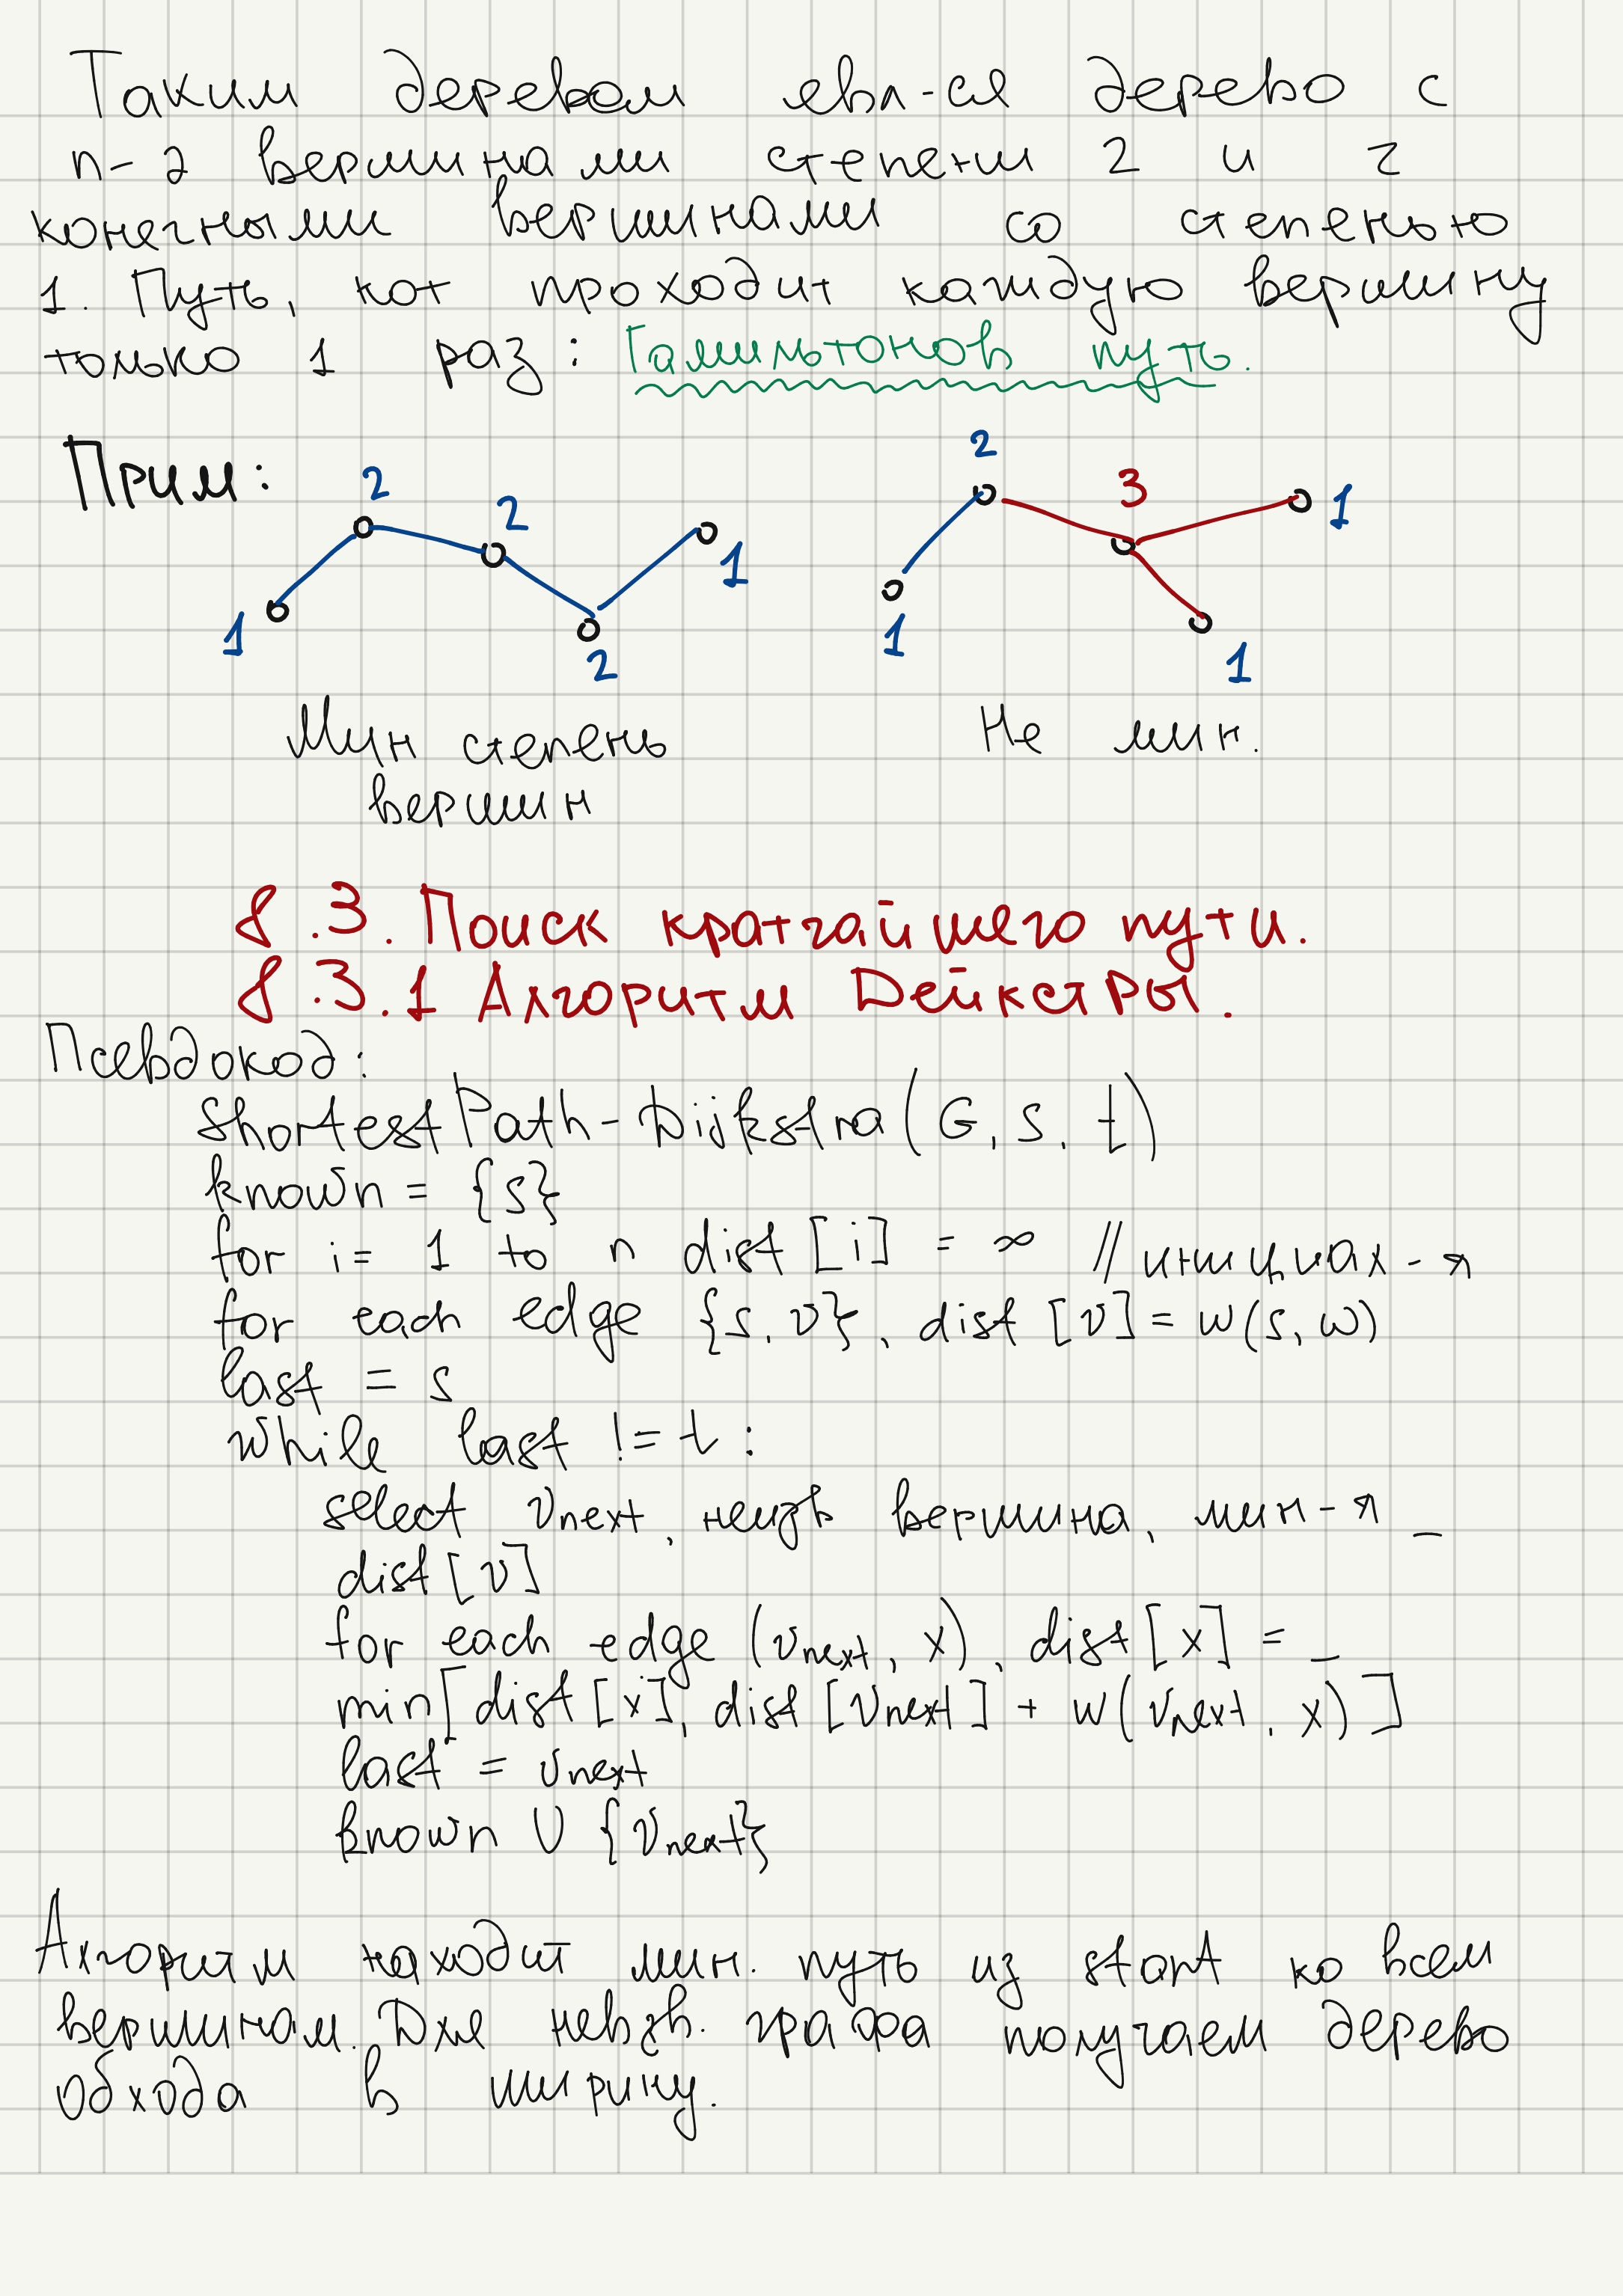 Таким деревом явл-ся дерево с
n-2 вершинами степени 2 и 2
конечными вершинами со степенью
1. Путь, кот проходит каждую вершину
только 1 раз: Гамильтонов путь.
Прим:
2 2 1 2 1
2 3 1 1 1
Мин степень
вершин
Не мин.
8.3. Поиск кратчайшего пути.
8.3.1 Алгоритм Дейкстры.
Псевдокод:
ShortestPath-Dijkstra(G, s, t)
known = {s}
for i= 1 to n dist [i] = ∞ // инициал-я
for each edge {s, v}, dist [v] = w(s, w)
last = s
while last != t :
select vnext, неизв вершина, мин-я _
dist [v]
for each edge (vnext, x), dist [x] = _
min[dist [x], dist [vnext] + w(vnext, x)]
last = vnext
known U {vnext}
Алгоритм находит мин. путь из start ко всем
вершинам. Для невзв. графа получаем дерево
обхода в ширину.